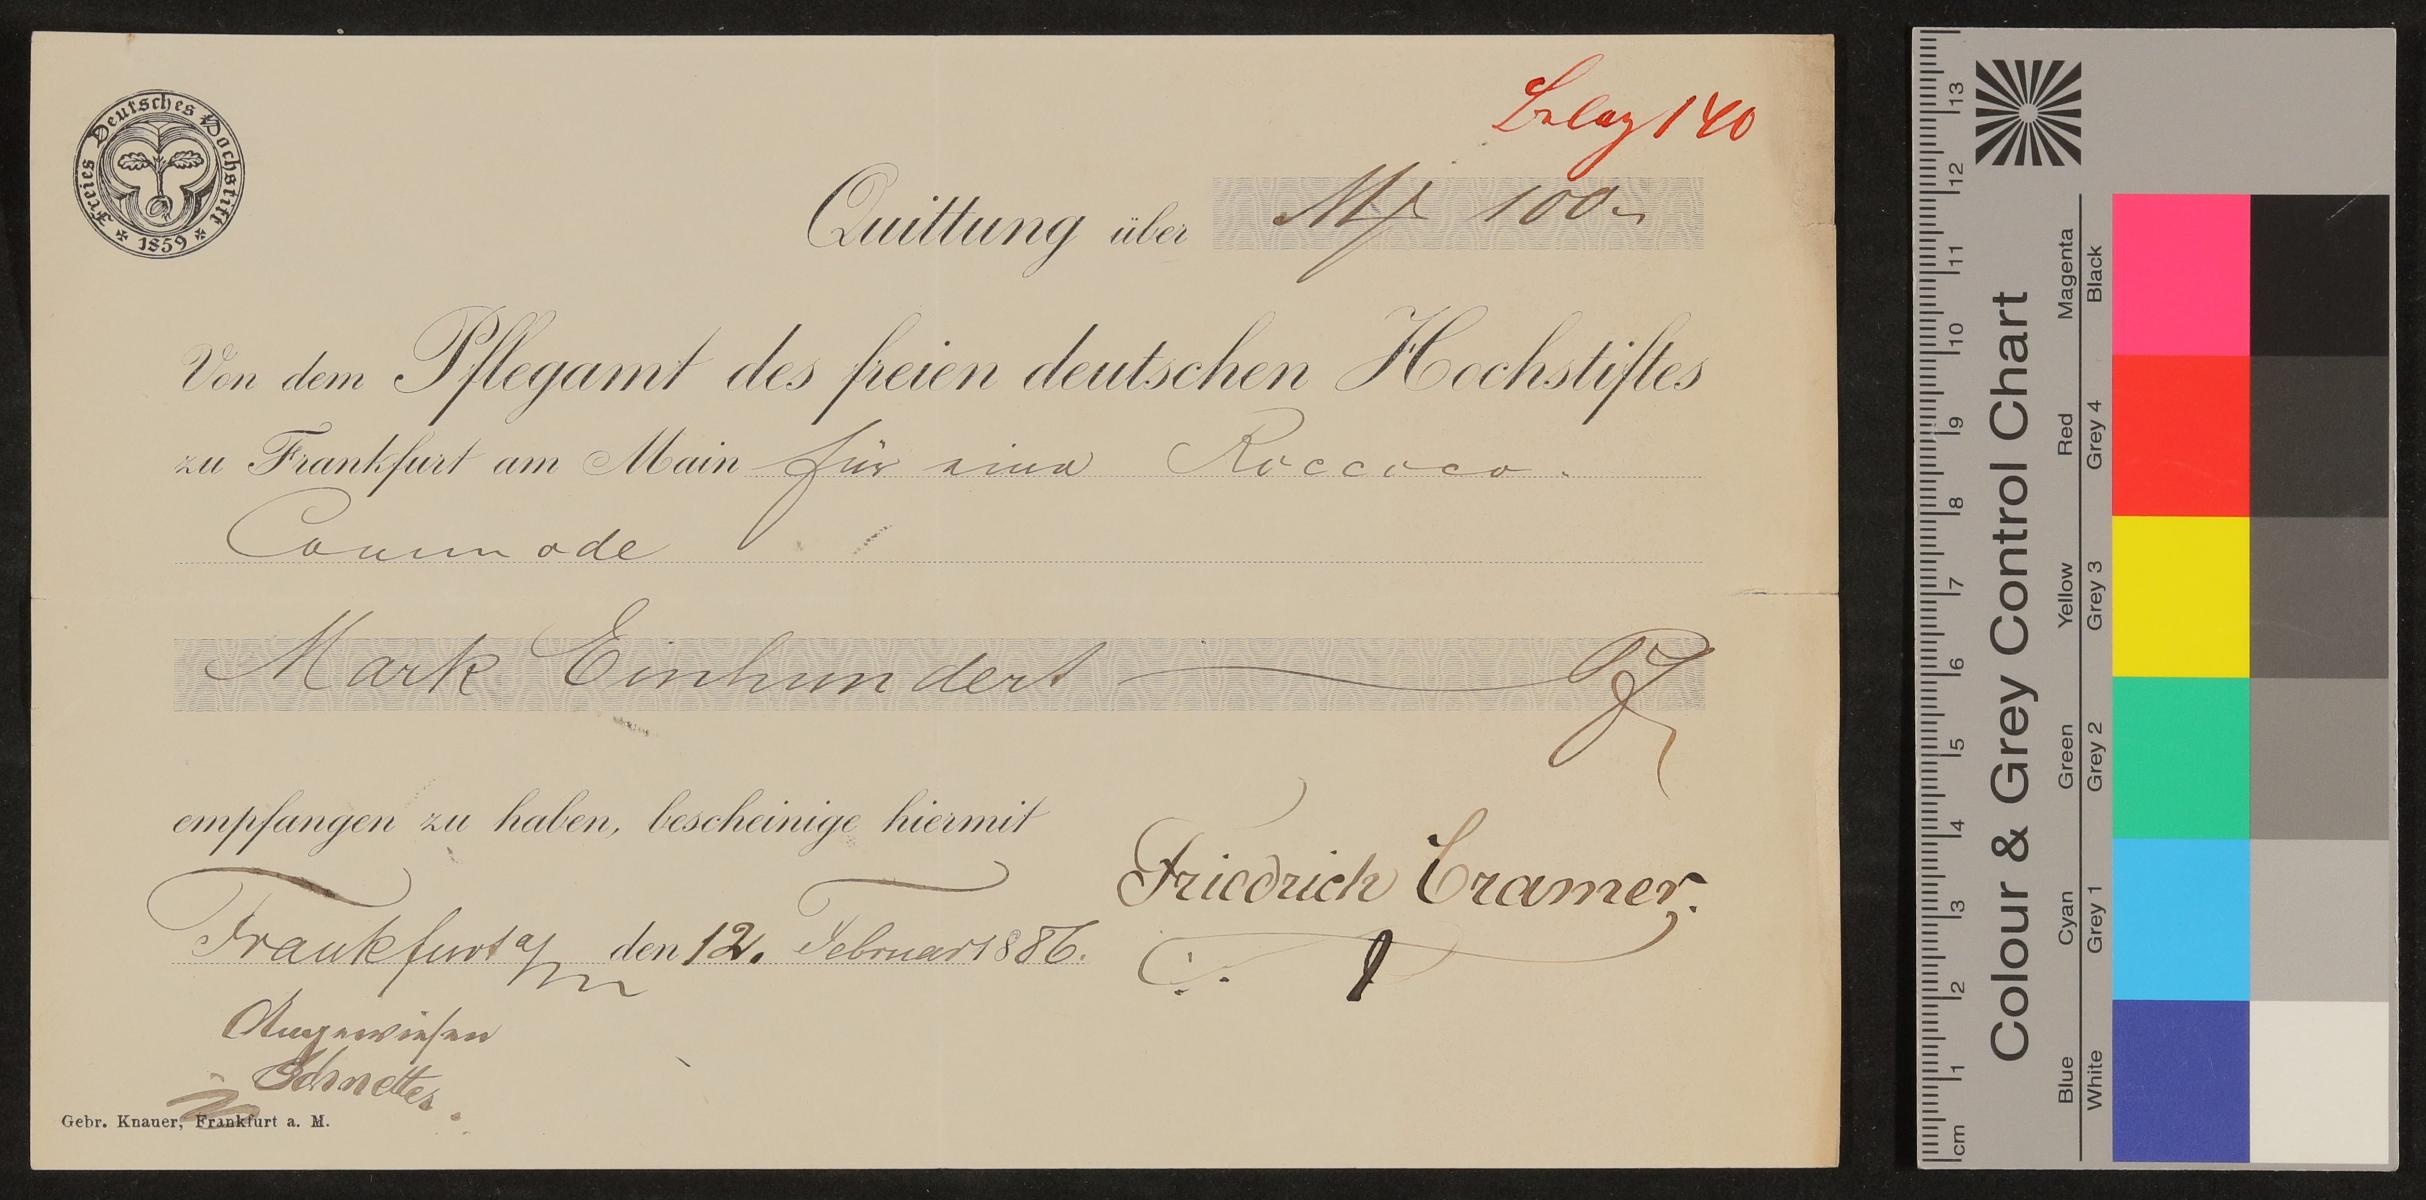 Freies Deutsches Hochstift
1859
Belag 140
Quittung über Mk 100.
Von dem Pflegamt des freien deutschen Hochstiftes
zu Frankfurt am Main für eine Roccoco.
Commode
Mark Einhundert
empfangen zu haben, bescheinige hiermit
Friedrich Cramer.
Frankfurt a/m den 12. Februar 1886.
Angewiesen
Gebr. Knauer, Frankfurt a. M.
Colour & Grey Control Chart
Blue Cyan Green Yellow Red Magenta
White Grey 1 Grey 2 Grey 3 Grey 4 Black
cm 1 2 3 4 5 6 7 8 9 10 11 12 13